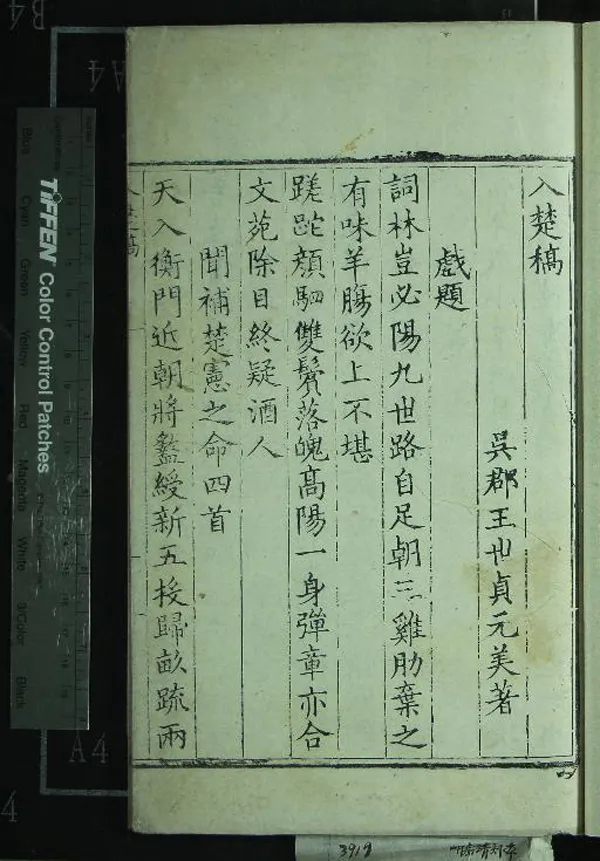 入楚稿
吳郡王世貞元美著
戲題
詞林豈必陽九世路自足朝三雞肋棄之
有味羊膓欲上不堪
蹉跎顔駟雙鬢落魄髙陽一身彈章亦合
文苑除目終疑酒人
聞補楚憲之命四首
天入衡門近朝將盭綬新五授歸畝疏兩
TIFFEN Color Control Patches
Blue
Cyan
Green
Yellow
Red
Magenta
White
3/Color
Black
B4
A4
A4
4